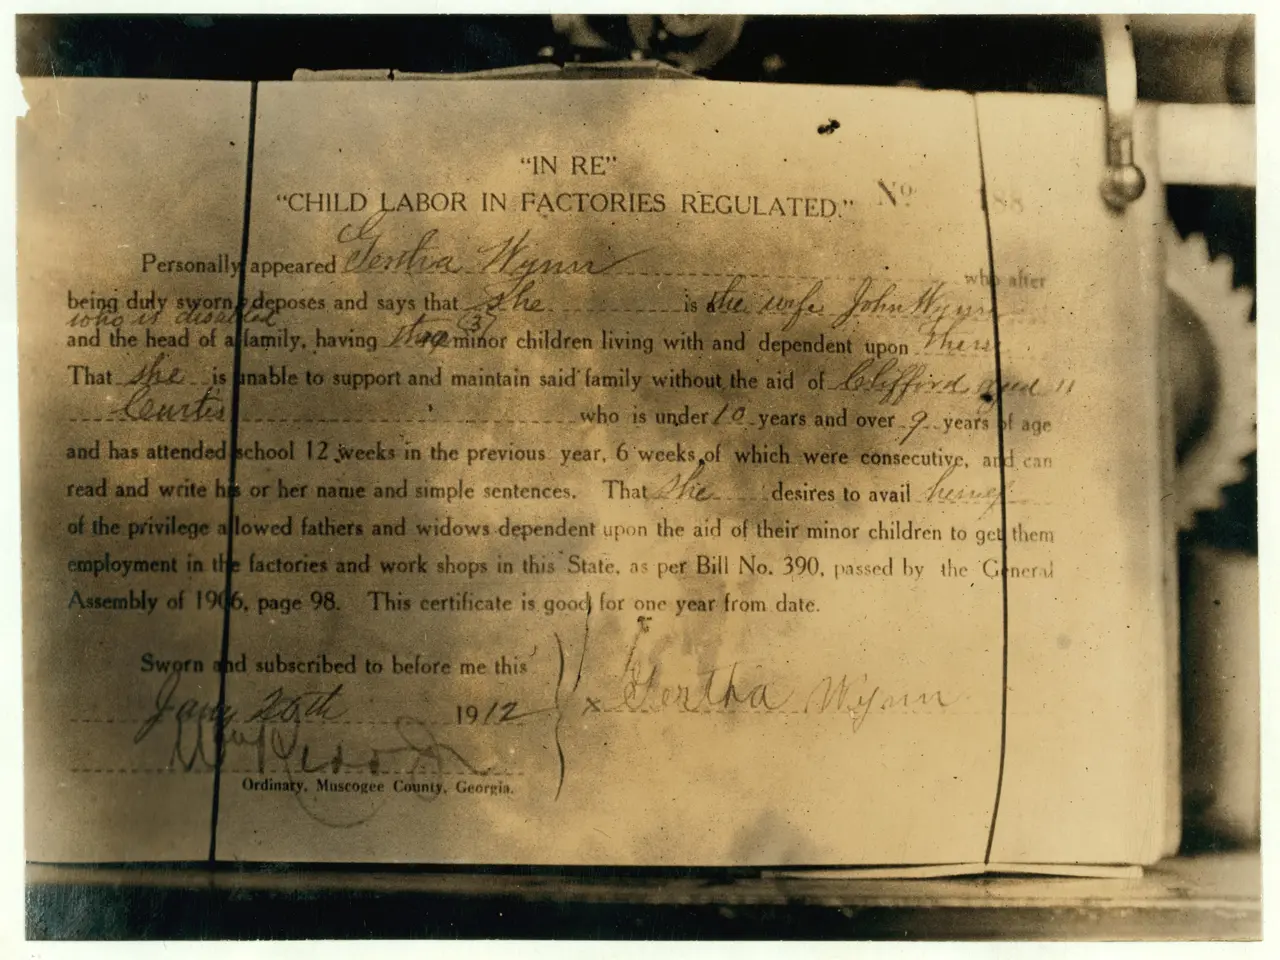 "IN RE"
"CHILD LABOR IN FACTORIES REGULATED." No. 188
Personally appeared Gertha Wynn who after
being duly sworn, deposes and says that she is the wife John Wynn
who is disabled
and the head of a family, having three (3) minor children living with and dependent upon them
That she is unable to support and maintain said family without the aid of Clifford aged 11
Curtis who is under 10 years and over 9 years of age
and has attended school 12 weeks in the previous year, 6 weeks of which were consecutive, and can
read and write his or her name and simple sentences. That she desires to avail
of the privilege allowed fathers and widows dependent upon the aid of their minor children to get them
employment in the factories and work shops in this State, as per Bill No. 390, passed by the General
Assembly of 1906, page 98. This certificate is good for one year from date.
Sworn and subscribed to before me this
Jany 26th 1912 x Gertha Wynn
Ordinary, Muscogee County, Georgia.